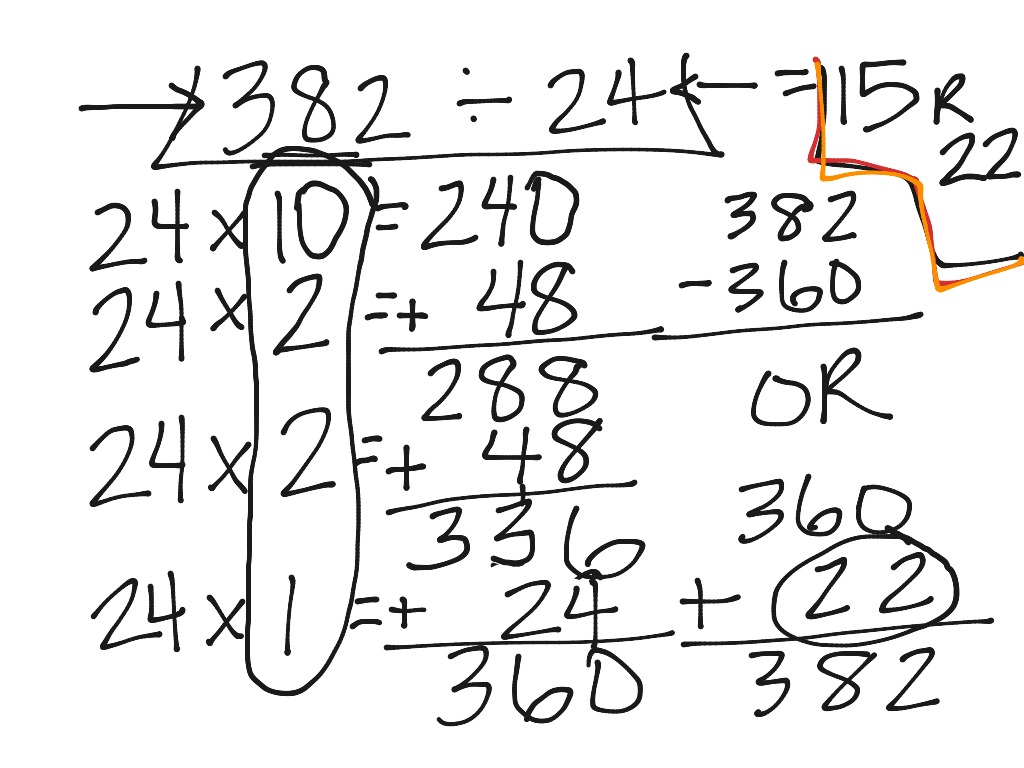 382 ÷ 24 = 15 R 22
24 × 10 = 240
24 × 2 = + 48
288
24 × 2 = + 48
336
24 × 1 = + 24
360
382
- 360
OR
360
+ 22
382